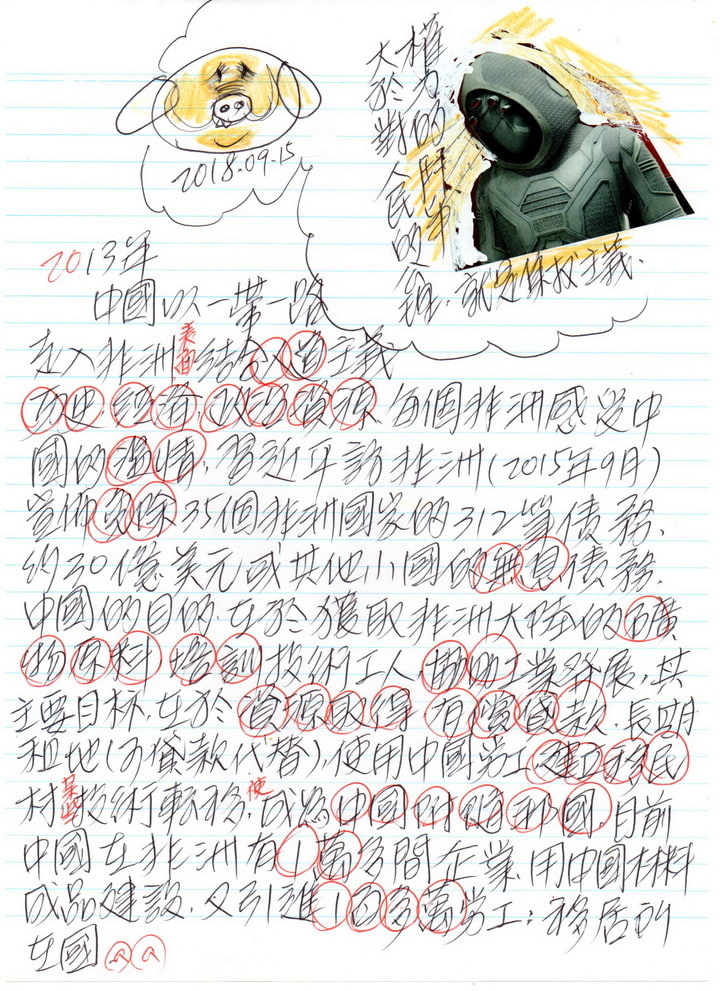 2018.09.15
權力的鬥爭
大於對人民的
維,就是保权主義.
2013年
中國以一带一路
走入非洲表面結合人道主義
历史 经济.政治資源 每個非洲感受中
國的湮情,習近平訪非洲(2015年9月)
宣佈免除35個非洲國家的312筆債務、
约30億美元或其他小國的無息債務.
中國的目的.在於獲取非洲大陸的礦
物原料 培訓技術工人,帮助工業發展,其
主要目标.在於資源取得 有償貸款,長期
租地(为贷款代替),使用中國劳工建立移民
村某些技術轉移,使成為中國附属邦國,目前
中國在非洲有1萬多間企業,用中國材料
成品建設.又引進1百多萬劳工;移居所
在國